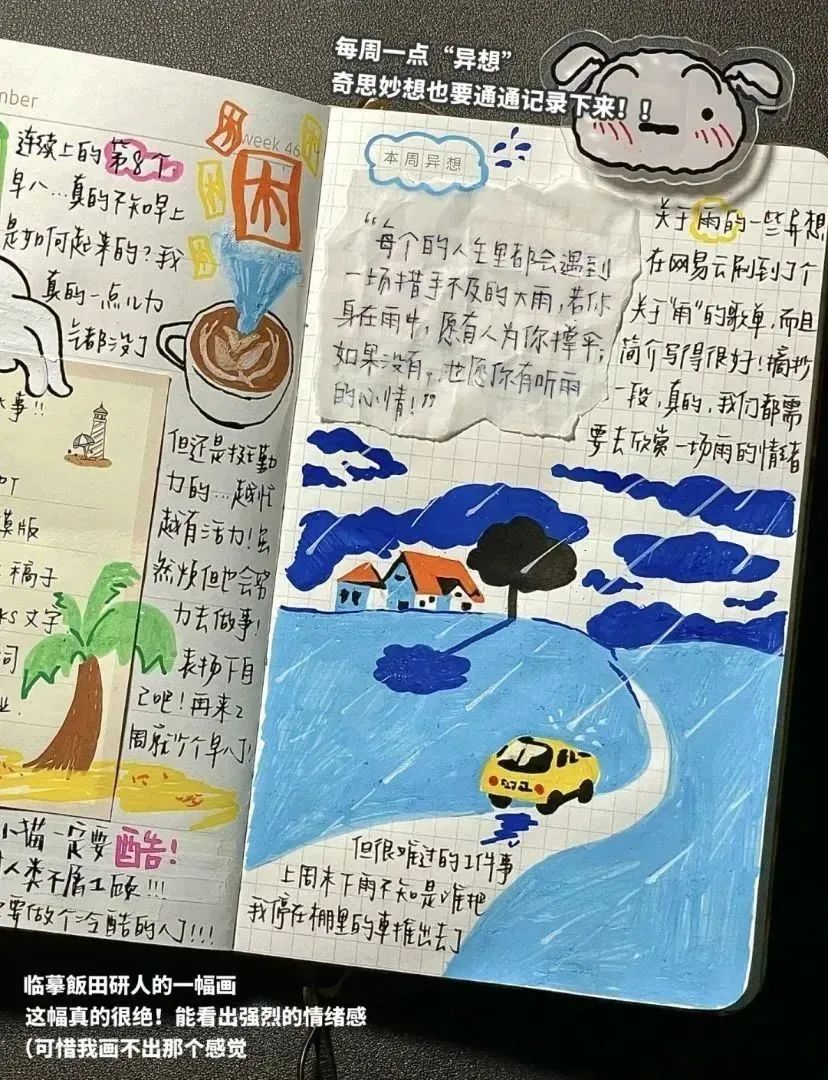 每周一点“异想”
奇思妙想也要通通记录下来！！
mber
week 46
困
困
困
困
困
连续上的第8个
早八...真的不知早上
是如何起来的？我
真的一点儿力
气都没了
事!!
模版
稿子
KS 文字
词
业.
但还是挺勤
力的...越忙
越有活力！虽
然烦但也会努
力去做事！
表扬下自
己吧！再来2
周就少个早八了！
小猫一定要酷！
人类不屑一顾!!!
要做个冷酷的人了!!!
本周异想
“每个的人生里都会遇到
一场措手不及的大雨，若你
身在雨中，愿有人为你撑伞；
如果没有，也愿你有听雨
的心情！”
关于雨的一些异想
在网易云刷到了个
关于“雨”的歌单，而且
简介写得很好！摘抄
一段，真的，我们都需
要去欣赏一场雨的情绪
但很难过的1件事
上周末下雨不知是谁把
我停在棚里的车推出去了
临摹飯田研人的一幅画
这幅真的很绝！能看出强烈的情绪感
（可惜我画不出那个感觉